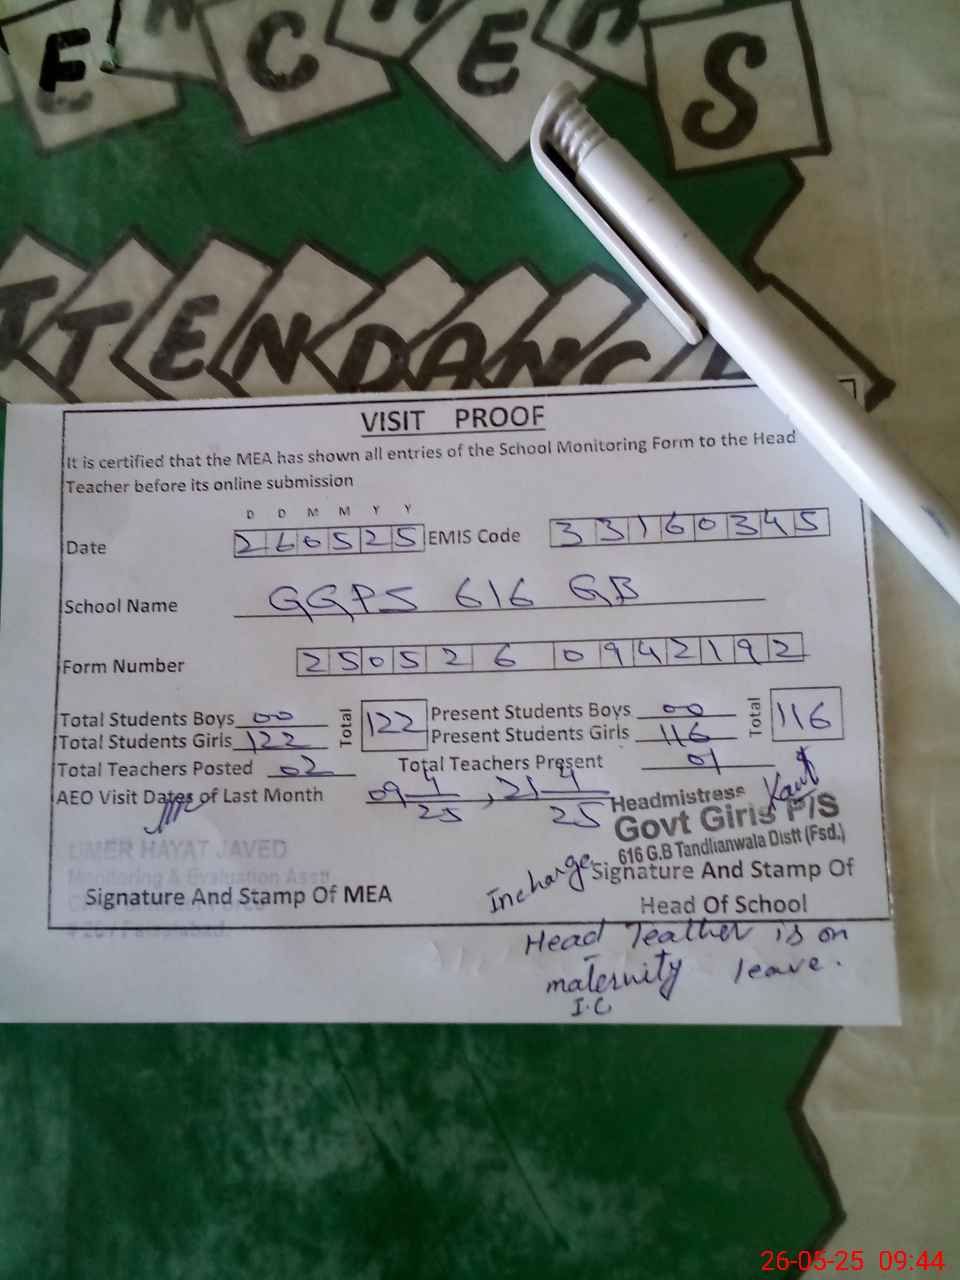 E C E S
TTENDANC
VISIT PROOF
It is certified that the MEA has shown all entries of the School Monitoring Form to the Head
Teacher before its online submission
D D M M Y Y
Date 260525 EMIS Code 33160345
School Name GGPS 616 GB
Form Number 2505260942192
Total Students Boys 00 Total 122 Present Students Boys 00 Total 116
Total Students Girls 122 Present Students Girls 116
Total Teachers Posted 02 Total Teachers Present 01
AEO Visit Dates of Last Month 09 4/25, 21 4/25
Headmistress
Govt Girls P/S
616 G.B Tandlianwala Distt (Fsd.)
UMER HAYAT JAVED
Monitoring & Evaluation Asstt.
Incharge
Signature And Stamp Of MEA Signature And Stamp Of
Head Of School
Head Teather is on
maternity leave.
I.C
26-05-25 09:44